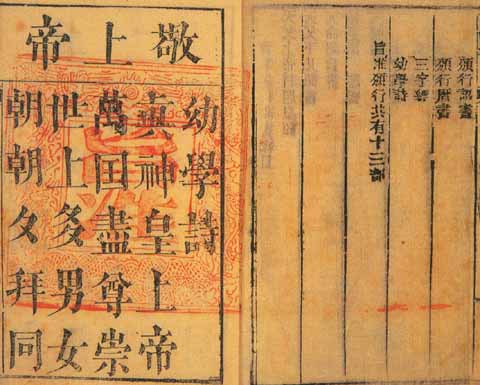 頒行詔書
頒行曆書
三字經
幼學詩
旨准頒行共有十三部
敬上帝
幼學詩
真神皇上帝
萬囯盡尊崇
世上多男女
朝朝夕拜同